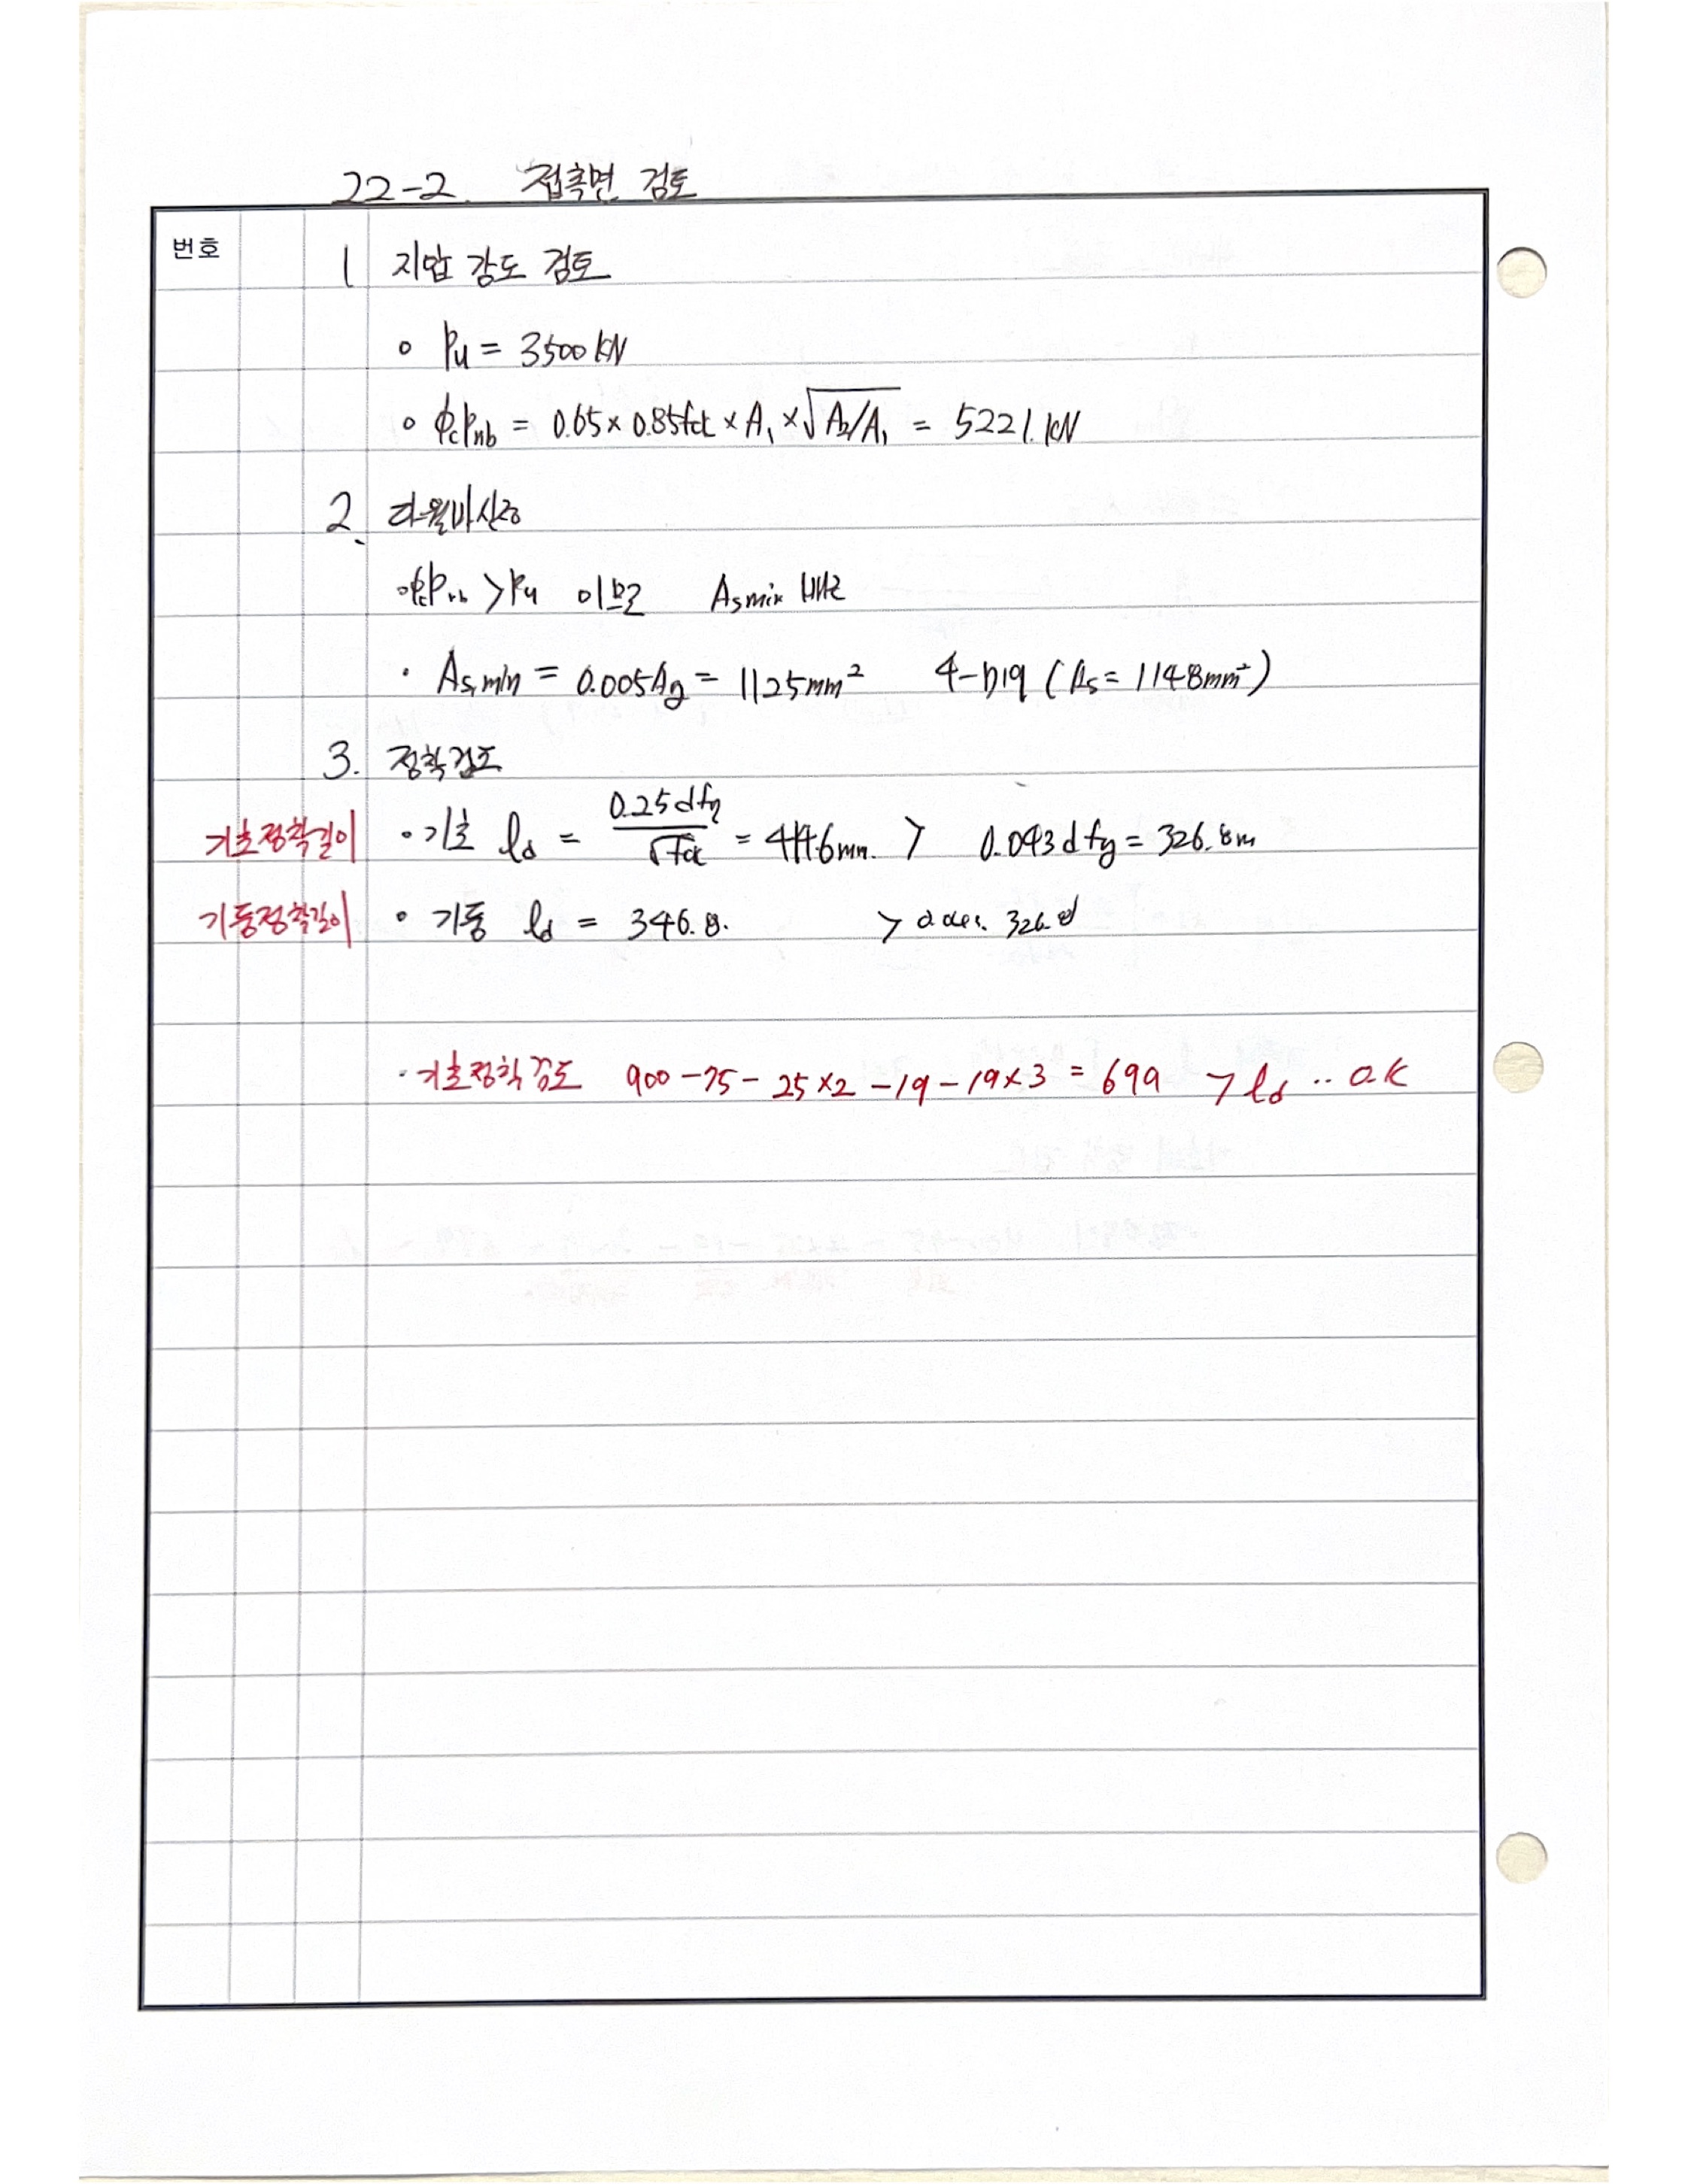 22-2. 접촉면 검토
번호
1 지압 강도 검토
∘ Pu = 3500 kN
∘ ϕcPnb = 0.65 × 0.85fck × A1 × √A2/A1 = 5221. kN
2. 다월바 산정
∘ϕcPnb > Pu 이므로 As min 배치
· As,min = 0.005Ag = 1125mm² 4-D19 (As = 1148mm²)
3. 정착검토
기초정착길이 · 기초 ld = 0.25dfy/√fck = 446mm. > 0.043dfy = 326.8m
기둥정착길이 ∘ 기둥 ld = 346.8. > 326.8
· 기초정착검토 900 - 75 - 25×2 - 19 - 19×3 = 699 > ld ∴ O.K